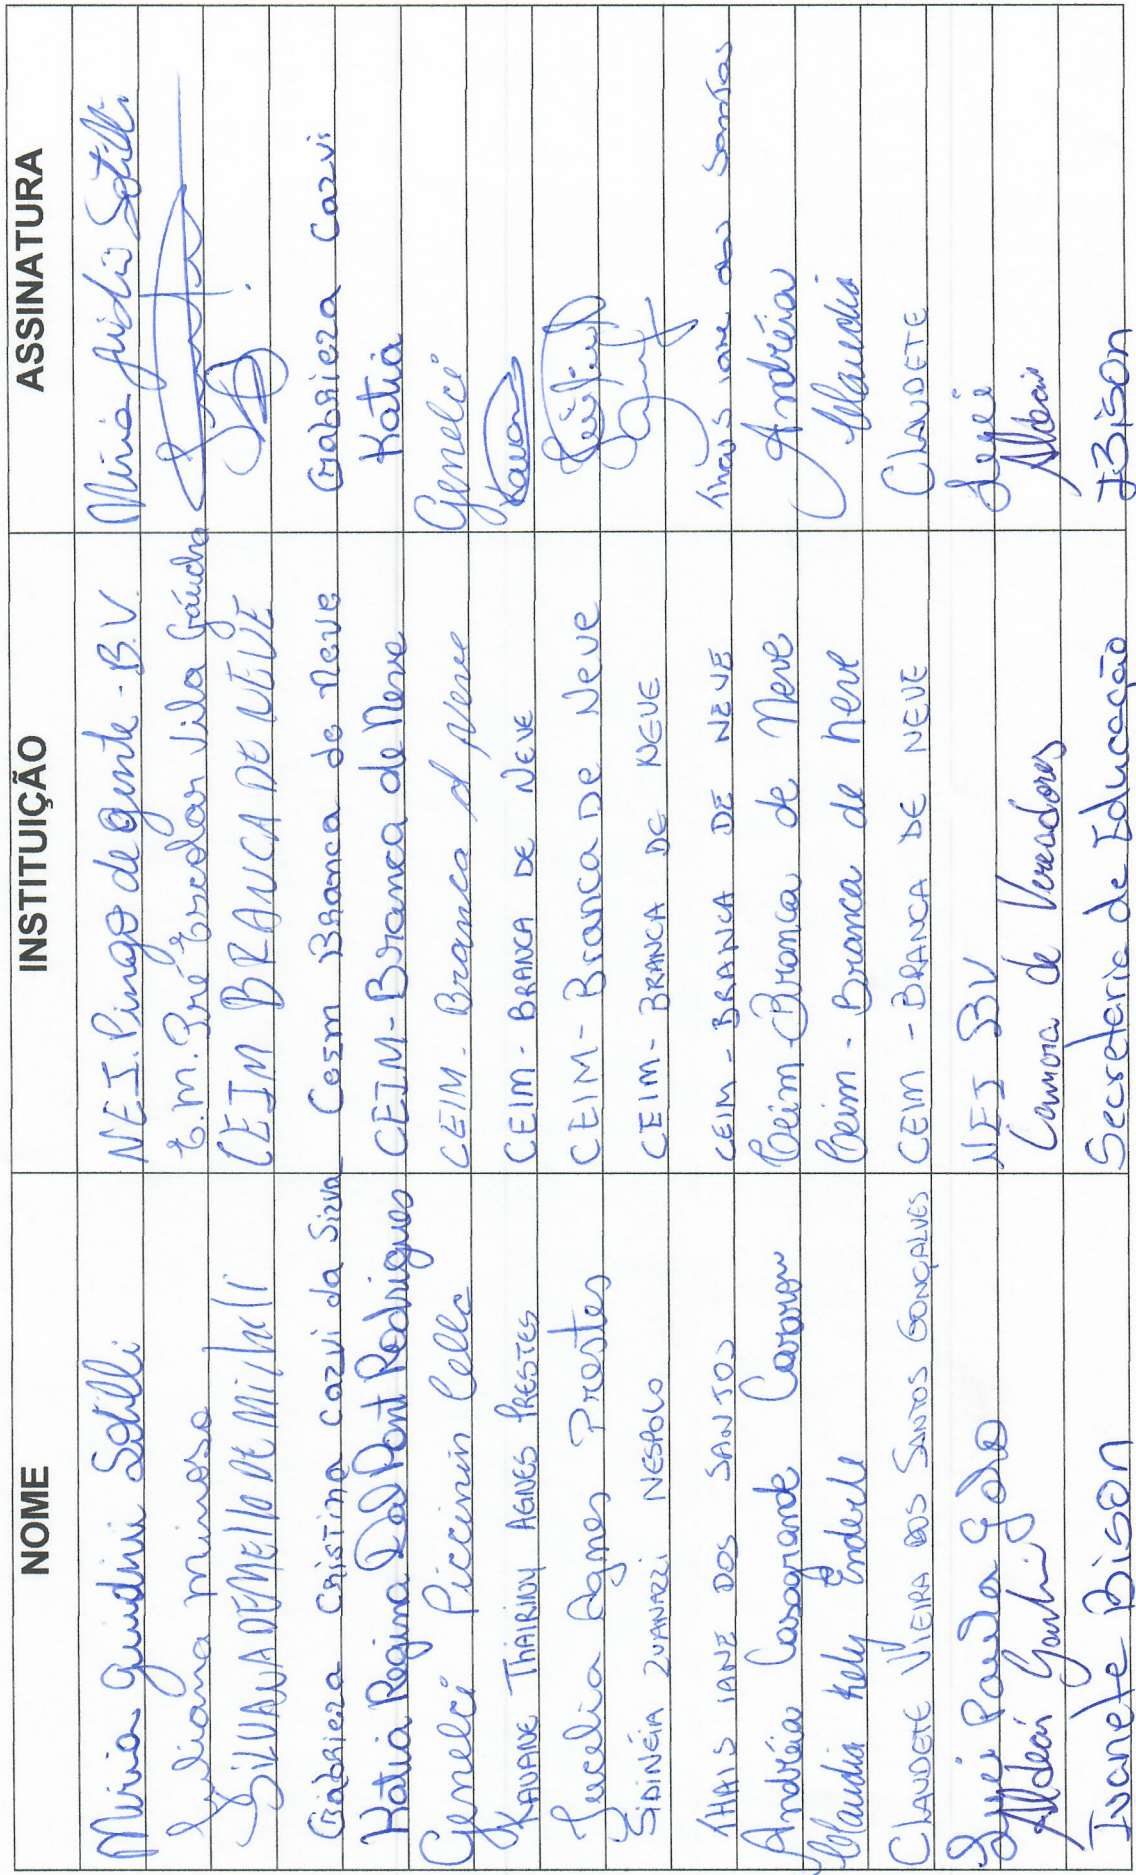 NOME INSTITUIÇÃO ASSINATURA
Miria Guidini Sotilli N.E.I. Pingo de gente - B.V. Miria Guidini Sotilli
Juliana Mimoso E.M. Pré Escolar Vila Gaúcha
SILVANA DE MELLO DE Micheli CEIM BRANCA DE NEVE
Gabriela Cristina Cazvi da Silva Ceim Branca de Neve Gabriela Cazvi
Katia Regina Dal Pont Rodrigues CEIM - Branca de Neve Katia
Genelci Piccinin Cella CEIM - Branca d Neve Genelci
KAUANE THAIRINY AGNES PRESTES CEIM - BRANCA DE NEVE Kauane
Jucelia Agnes Prestes CEIM - Branca De Neve
SIDINÉIA ZUANAZZI NESPOLO CEIM - BRANCA DE NEVE
THAIS IANE DOS SANTOS CEIM - BRANCA DE NEVE Thais iane dos Santos
Andréia Casagrande Ceim - Branca de Neve Andréia
Claudia Kely Enderle Ceim - Branca de neve Claudia
CLAUDETE VIEIRA DOS SANTOS GONÇALVES CEIM - BRANCA DE NEVE CLAUDETE
Paula NEI BV
Aldecir Camara de Vereadores Aldecir
Ivanete Bison Secretaria de Educação IBison